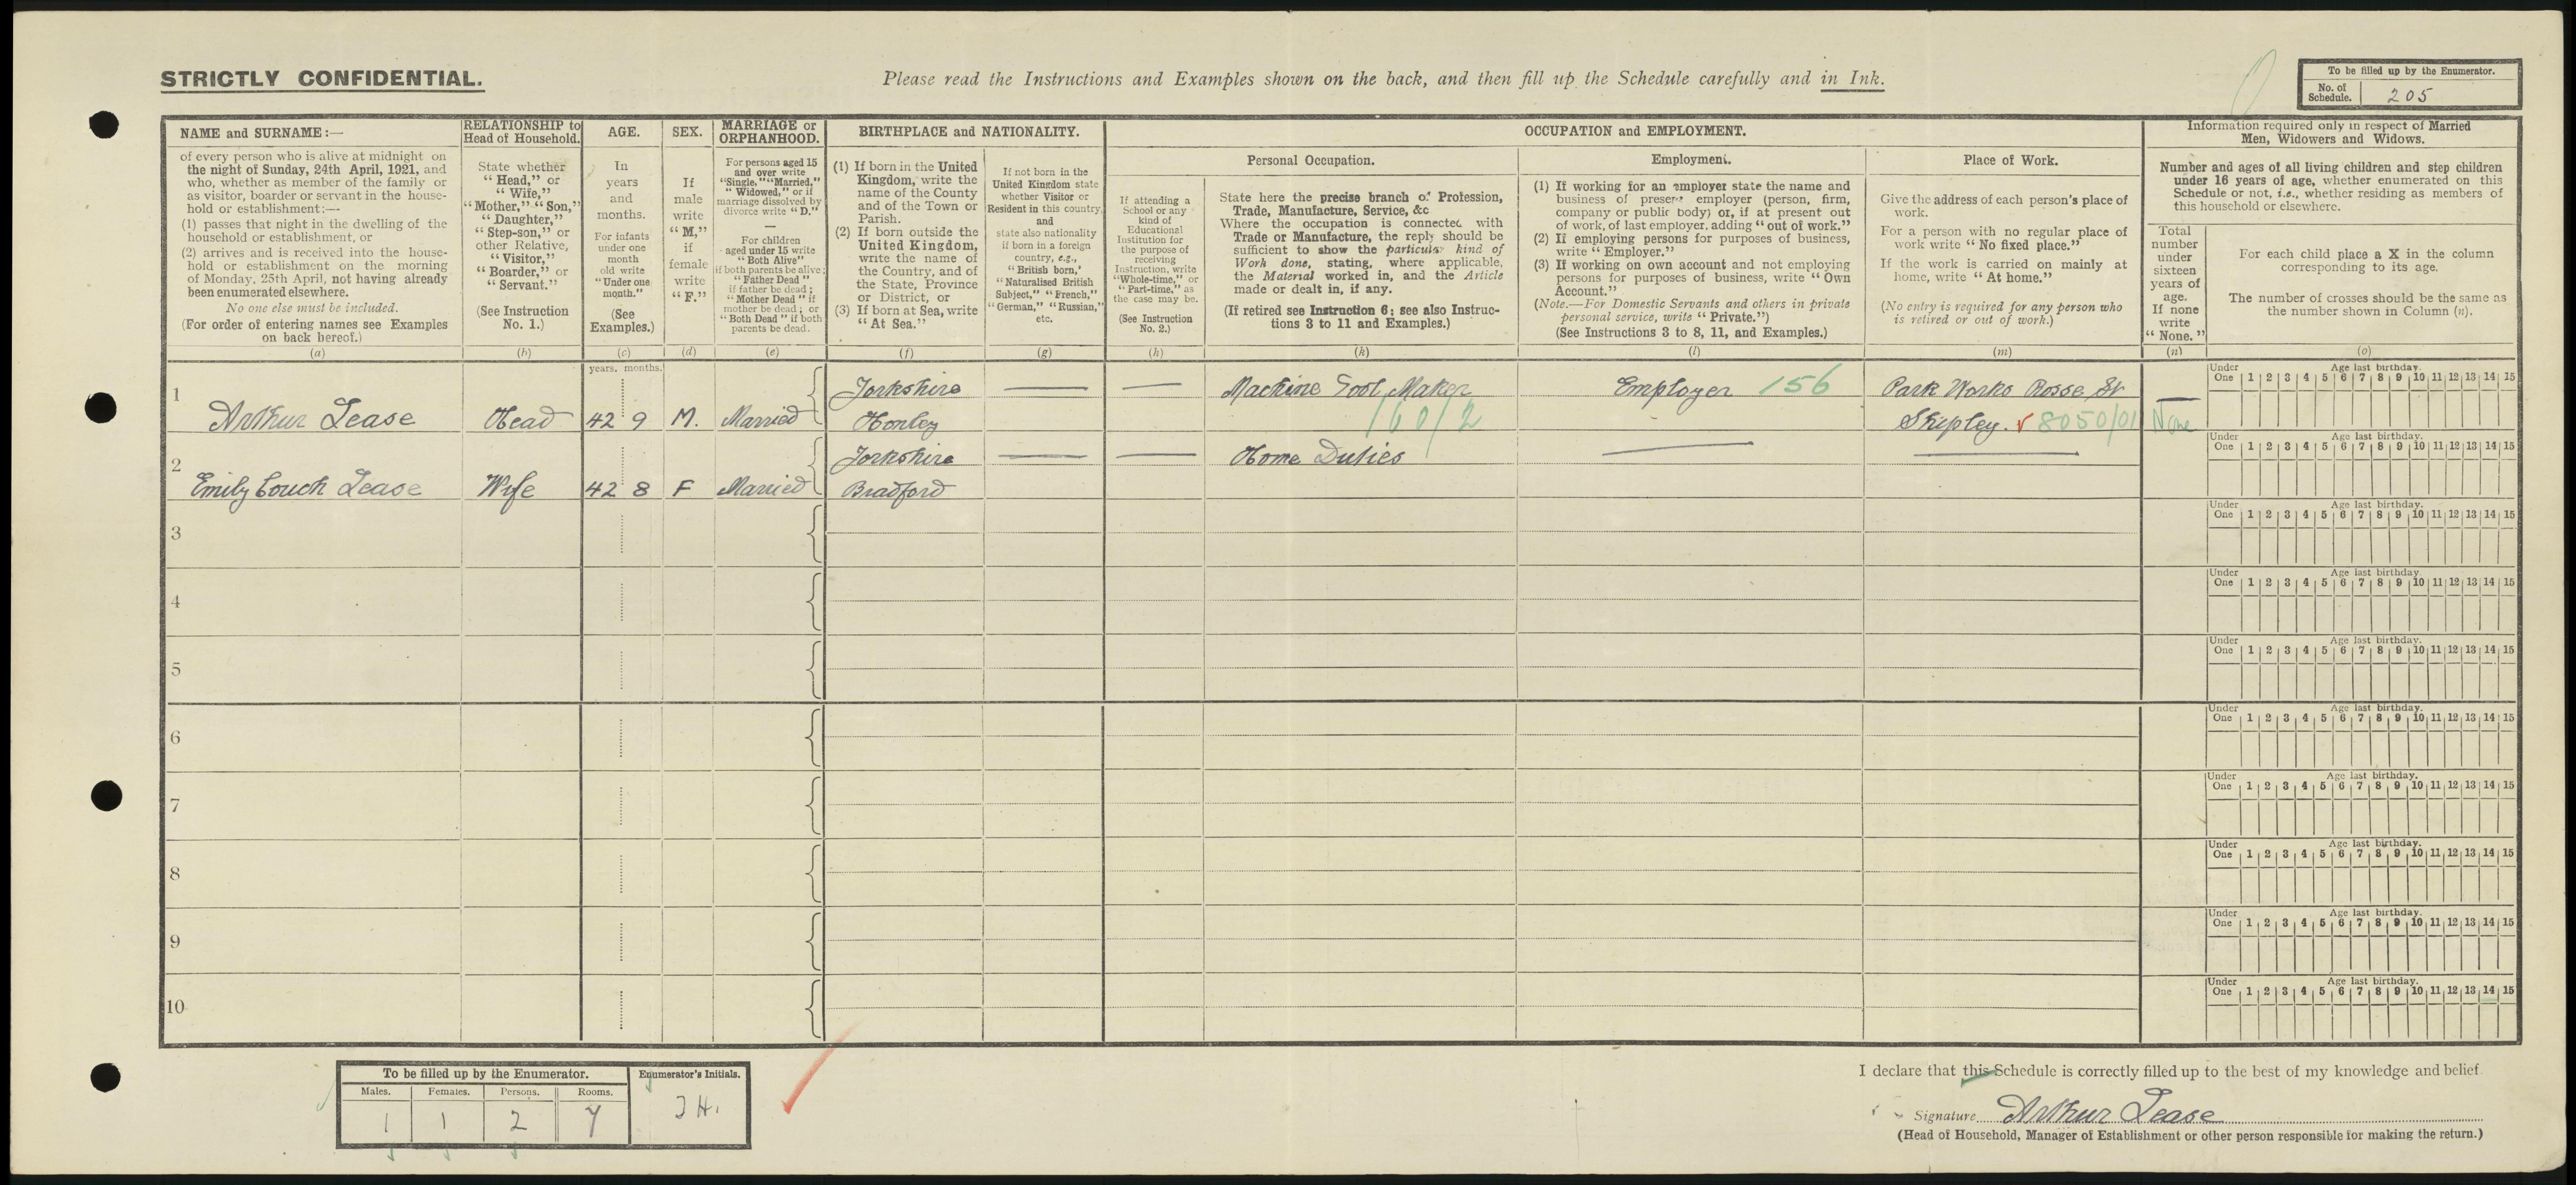 STRICTLY CONFIDENTIAL.
Please read the Instructions and Examples shown on the back, and then fill up the Schedule carefully and in Ink.
To be filled up by the Enumerator.
No. of Schedule. 205
NAME and SURNAME:—
of every person who is alive at midnight on
the night of Sunday, 24th April, 1921, and
who, whether as member of the family or
as visitor, boarder or servant in the house-
hold or establishment:—
(1) passes that night in the dwelling of the
household or establishment, or
(2) arrives and is received into the house-
hold or establishment on the morning
of Monday, 25th April, not having already
been enumerated elsewhere.
No one else must be included.
(For order of entering names see Examples
on back hereof.)
(a)
RELATIONSHIP to
Head of Household.
State whether
"Head," or
"Wife,"
"Mother," "Son,"
"Daughter,"
"Step-son," or
other Relative,
"Visitor,"
"Boarder," or
"Servant."
(See Instruction
No. 1.)
(b)
AGE.
In
years
and
months.
For infants
under one
month
old write
"Under one
month."
(See
Examples.)
(c)
SEX.
If
male
write
"M,"
if
female
write
"F."
(d)
MARRIAGE or
ORPHANHOOD.
For persons aged 15
and over write
"Single," "Married,"
"Widowed," or if
marriage dissolved by
divorce write "D."
—
For children
aged under 15 write
"Both Alive"
if both parents be alive;
"Father Dead"
if father be dead;
"Mother Dead" if
mother be dead; or
"Both Dead" if both
parents be dead.
(e)
BIRTHPLACE and NATIONALITY.
(1) If born in the United
Kingdom, write the
name of the County
and of the Town or
Parish.
(2) If born outside the
United Kingdom,
write the name of
the Country, and of
the State, Province
or District, or
(3) If born at Sea, write
"At Sea."
(f)
If not born in the
United Kingdom state
whether Visitor or
Resident in this country,
and
state also nationality
if born in a foreign
country, e.g.,
"British born,"
"Naturalised British
Subject," "French,"
"German," "Russian,"
etc.
(g)
OCCUPATION and EMPLOYMENT.
If attending a
School or any
kind of
Educational
Institution for
the purpose of
receiving
Instruction, write
"Whole-time," or
"Part-time," as
the case may be.
(See Instruction
No. 2.)
(h)
Personal Occupation.
State here the precise branch of Profession,
Trade, Manufacture, Service, &c
Where the occupation is connected with
Trade or Manufacture, the reply should be
sufficient to show the particular kind of
Work done, stating, where applicable,
the Material worked in, and the Article
made or dealt in, if any.
(If retired see Instruction 6; see also Instruc-
tions 3 to 11 and Examples.)
(k)
Employment.
(1) If working for an employer state the name and
business of present employer (person, firm,
company or public body) or, if at present out
of work, of last employer, adding "out of work."
(2) If employing persons for purposes of business,
write "Employer."
(3) If working on own account and not employing
persons for purposes of business, write "Own
Account."
(Note.—For Domestic Servants and others in private
personal service, write "Private.")
(See Instructions 3 to 8, 11, and Examples.)
(l)
Place of Work.
Give the address of each person's place of
work.
For a person with no regular place of
work write "No fixed place."
If the work is carried on mainly at
home, write "At home."
(No entry is required for any person who
is retired or out of work.)
(m)
Information required only in respect of Married
Men, Widowers and Widows.
Number and ages of all living children and step children
under 16 years of age, whether enumerated on this
Schedule or not, i.e., whether residing as members of
this household or elsewhere.
Total
number
under
sixteen
years of
age.
If none
write
"None."
(n)
For each child place a X in the column
corresponding to its age.
The number of crosses should be the same as
the number shown in Column (n).
(o)
years. months.
1 Arthur Lease Head 42 9 M. Married Yorkshire Honley — — Machine Tool Maker 160/2 Employer 156 Park Works Rosse St Shipley. ✓ 8050/01 — None
Under One Age last birthday. 1 2 3 4 5 6 7 8 9 10 11 12 13 14 15
2 Emily Couch Lease Wife 42 8 F Married Yorkshire Bradford — — Home Duties — —
Under One Age last birthday. 1 2 3 4 5 6 7 8 9 10 11 12 13 14 15
3
Under One Age last birthday. 1 2 3 4 5 6 7 8 9 10 11 12 13 14 15
4
Under One Age last birthday. 1 2 3 4 5 6 7 8 9 10 11 12 13 14 15
5
Under One Age last birthday. 1 2 3 4 5 6 7 8 9 10 11 12 13 14 15
6
Under One Age last birthday. 1 2 3 4 5 6 7 8 9 10 11 12 13 14 15
7
Under One Age last birthday. 1 2 3 4 5 6 7 8 9 10 11 12 13 14 15
8
Under One Age last birthday. 1 2 3 4 5 6 7 8 9 10 11 12 13 14 15
9
Under One Age last birthday. 1 2 3 4 5 6 7 8 9 10 11 12 13 14 15
10
Under One Age last birthday. 1 2 3 4 5 6 7 8 9 10 11 12 13 14 15
To be filled up by the Enumerator.
Males. Females. Persons. Rooms.
1 1 2 7
Enumerator's Initials.
J H.
I declare that this Schedule is correctly filled up to the best of my knowledge and belief.
Signature Arthur Lease
(Head of Household, Manager of Establishment or other person responsible for making the return.)